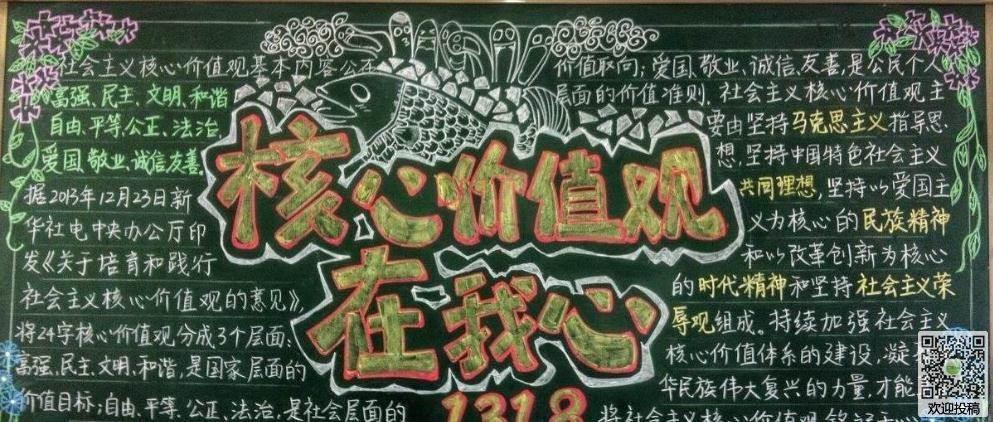 社会主义核心价值观基本内容公
高强、民主、文明、和谐
自由、平等、公正、法治、
爱国、敬业、诚信、友善
据2013年12月23日新
华社电中央办公厅印
发《关于培育和践行
社会主义核心价值观的意见》
将24字核心价值观分成3个层面:
高强、民主、文明、和谐,是国家层面的
价值目标;自由、平等、公正、法治、是社会层面的
核心价值观
在我心
1318
价值取向;爱国、敬业、诚信、友善,是公民个人
层面的价值准则.社会主义核心价值观主
要由坚持马克思主义指导思
想,坚持中国特色社会主义
共同理想,坚持以爱国主
义为核心的民族精神
和以改革创新为核心
的时代精神和坚持社会主义荣
辱观组成。持续加强社会主义
核心价值体系的建设,凝
华民族伟大复兴的力量,才能
将社会主义核心价值观
欢迎投稿